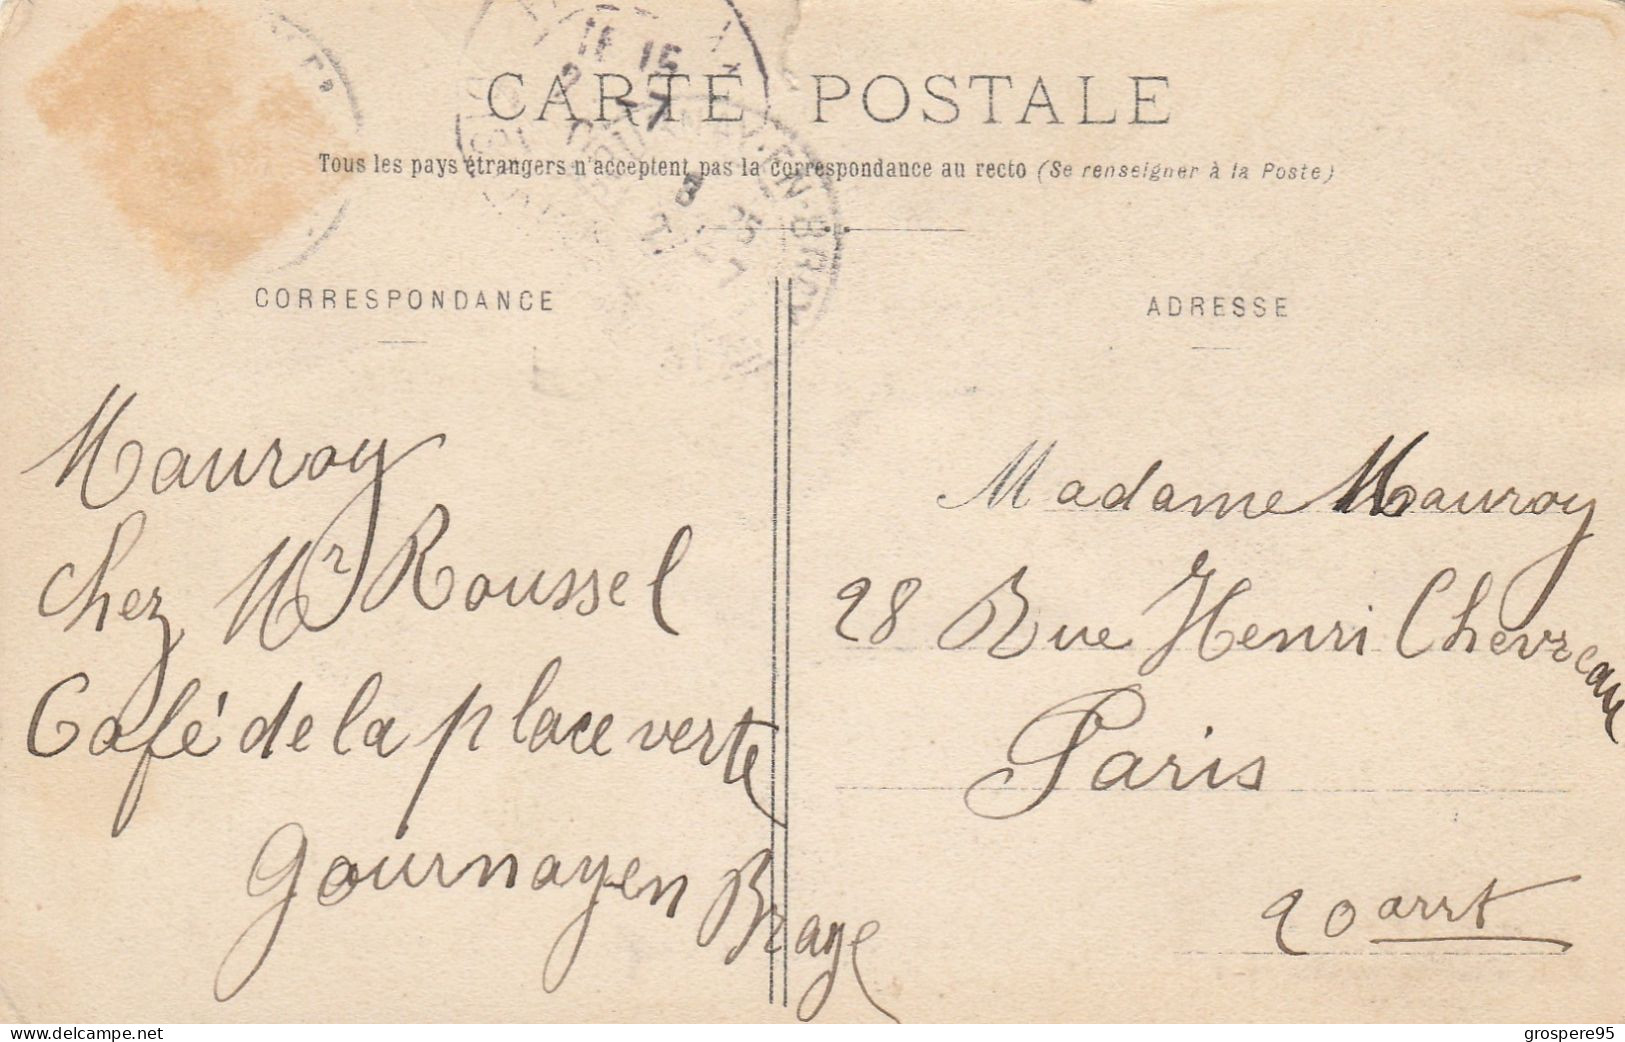 CARTE POSTALE
Tous les pays étrangers n'acceptent pas la correspondance au recto (Se renseigner à la Poste)
CORRESPONDANCE
Mauroy
chez Mr Roussel
Café de la place verte
Gournay en Braye
ADRESSE
Madame Mauroy
28 Rue Henri Chevreau
Paris
20 arrt
www.delcampe.net
grospere95